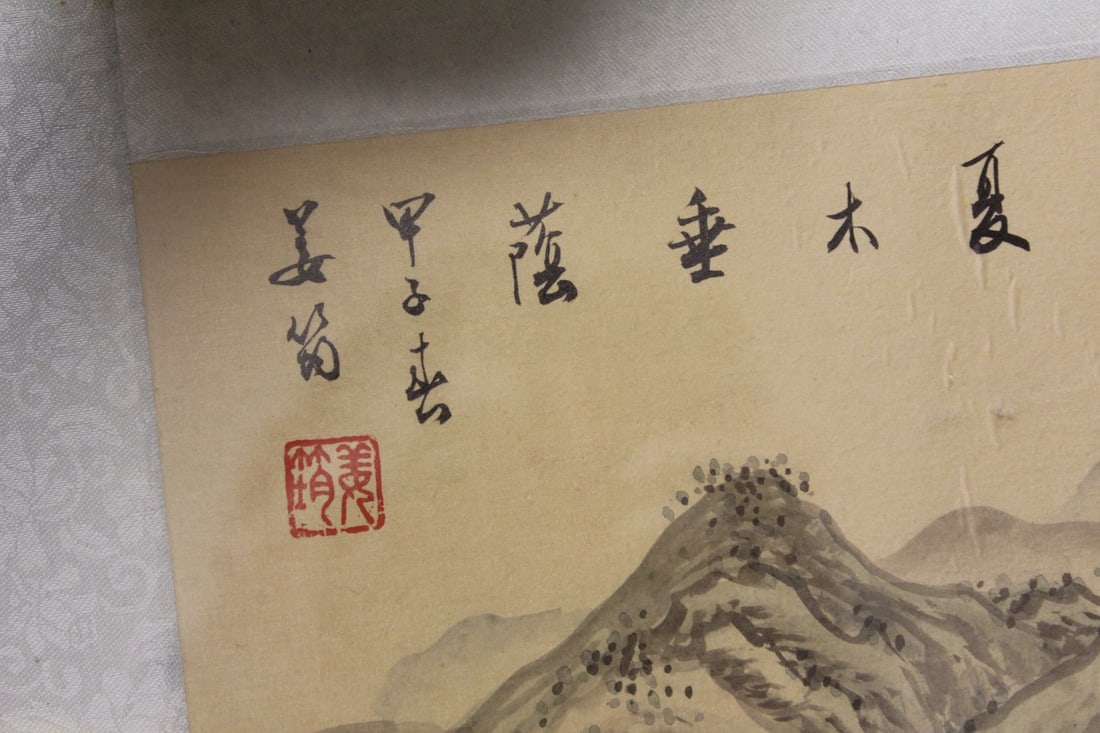 夏木垂蔭
甲子春
姜筠
姜筠